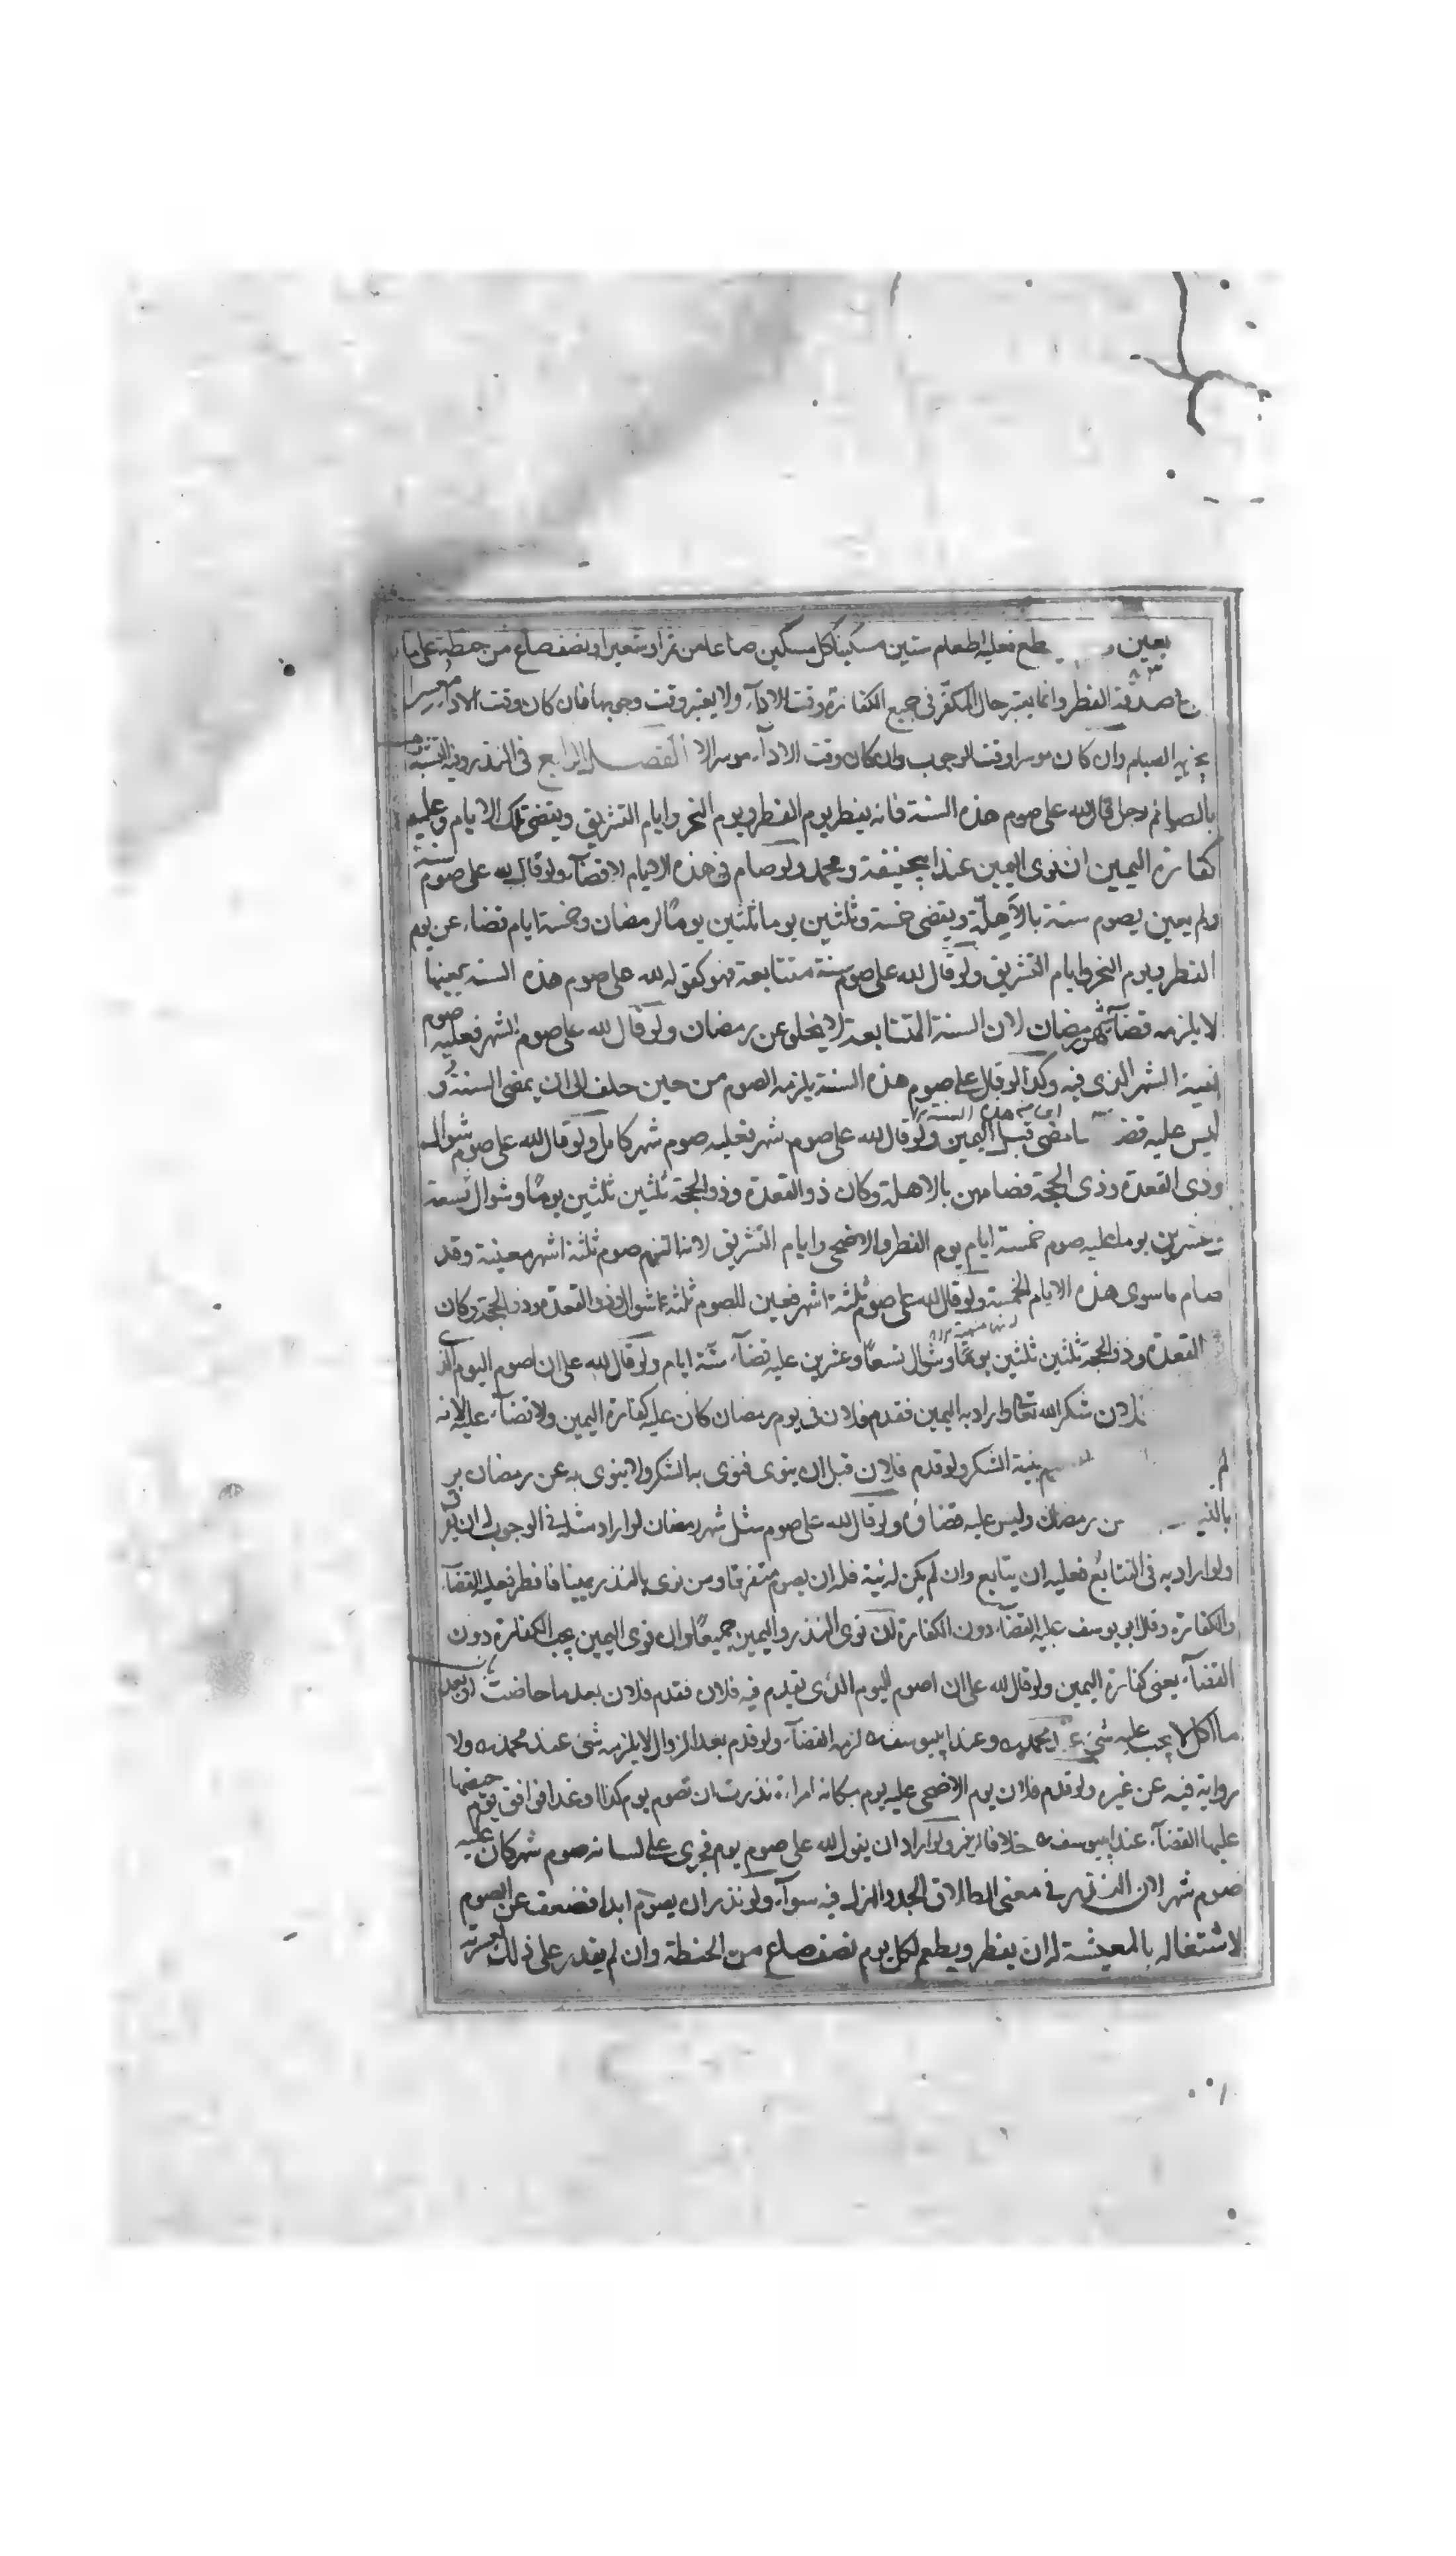 بعين طع فعليه اطعام ستين مسكينا كل مسكين صاعا من تمر او شعير او نصف صاع من حنطة على ما
صدقة الفطر وانما يعتبر حال المكفر فى جميع الكفارة وقت الادآء ولا يعتبر وقت وجوبها فان كان وقت الادآء معسرا
يجزيه الصيام وان كان موسرا وقت الوجوب وان كان وقت الادآء موسرا لا الفصل الرابع فى النذر
بالصيام رجل قال لله على صوم هذه السنة فانه يفطر يوم الفطر ويوم النحر وايام التشريق ويقضى تلك الايام وعليه
كفارة اليمين ان نوى اليمين عند ابيحنيفة ومحمد ولو صام فى هذه الايام لا قضآء ولو قال لله على صوم سنة
ولم يعين يصوم سنة بالاهلة ويقضى خمسة وثلثين يوما ثلثين يوما لرمضان وخمسة ايام قضاء عن يوم
الفطر ويوم النحر وايام التشريق ولو قال لله على صوم سنة متتابعة فهو كقوله لله على صوم هذه السنة بعينها
لا يلزمه قضآء شهر رمضان لان السنة المتتابعة لا يخلو عن رمضان ولو قال لله على صوم الشهر فعليه صوم
بقية الشهر الذى فيه وكذا لو قال على صوم هذه السنة يلزمه الصوم من حين حلف الى ان يمضى السنة و
ليس عليه قضـ ما مضى قبل اليمين ولو قال لله على صوم شهر فعليه صوم شهر كامل ولو قال لله على صوم شوال
وذى القعدة وذى الحجة فصامهن بالاهلة وكان ذو القعدة وذو الحجة ثلثين ثلثين يوما وشوال تسعة
وعشرين يوما عليه صوم خمسة ايام يوم الفطر والاضحى وايام التشريق لانه التزم صوم ثلثة اشهر معينة وقد
صام ما سوى هذه الايام الخمسة ولو قال لله على صوم ثلثة اشهر فعين للصوم ثلثة شوال وذو القعدة وذو الحجة وكان
القعدة وذو الحجة ثلثين ثلثين يوما وشوال تسعا وعشرين عليه قضآء ستة ايام ولو قال لله على ان اصوم اليوم الذى
فلان شكرا لله تعالى واراد به اليمين فقدم فلان فى يوم رمضان كان عليه كفارة اليمين ولا قضآء عليه لانه
لم بنية الشكر ولو قدم فلان قبل ان ينوى فنوى به الشكر ولا ينوى به عن رمضان بر
بالنية من رمضان وليس عليه قضاؤه ولو قال لله على صوم مثل شهر رمضان لو اراد مثله فى الوجوب له ان يفرق
ولو اراد به فى التتابع فعليه ان يتابع وان لم يكن له نية فله ان يصوم متفرقا ومن نوى بالنذر يمينا فافطر فعليه القضآء
والكفارة وقال ابو يوسف عليه القضآء دون الكفارة لمن نوى النذر واليمين جميعا وان نوى اليمين يجب الكفارة دون
القضآء يعنى كفارة اليمين ولو قال لله على ان اصوم اليوم الذى يقدم فيه فلان فقدم فلان بعد ما حاضت او بعد
ما اكل لا يجب عليه شئ عند محمد وعند ابييوسف لزمه القضآء ولو قدم بعد الزوال لا يلزمه شئ عند محمد ولا
رواية فيه عن غيره ولو قدم فلان يوم الاضحى عليه يوم مكانه امراة نذرت ان تصوم يوم كذا او غدا فوافق يوم حيضها
عليها القضآء عند ابييوسف خلافا لزفر ولو اراد ان يقول لله على صوم يوم فجرى على لسانه صوم شهر كان عليه
صوم شهر لان النذر فى معنى الطلاق الجد والهزل فيه سوآء ولو نذر ان يصوم ابدا فضعف عن الصوم
لاشتغاله بالمعيشة له ان يفطر ويطعم لكل يوم نصف صاع من الحنطة وان لم يقدر على ذلك لعسرته